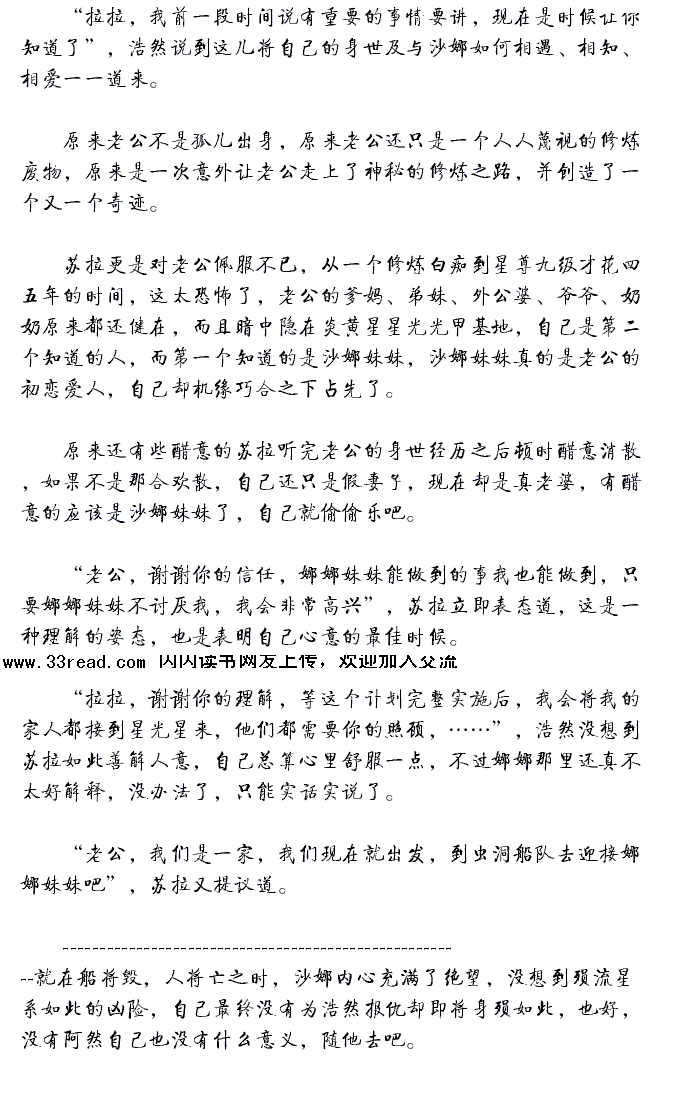 “拉拉，我前一段时间说有重要的事情要讲，现在是时候让你
知道了”，浩然说到这儿将自己的身世及与沙娜如何相遇、相知、
相爱一一道来。
原来老公不是孤儿出身，原来老公还只是一个人人蔑视的修炼
废物，原来是一次意外让老公走上了神秘的修炼之路，并创造了一
个又一个奇迹。
苏拉更是对老公佩服不已，从一个修炼白痴到星尊九级才花四
五年的时间，这太恐怖了，老公的爹妈、弟妹、外公婆、爷爷、奶
奶原来都还健在，而且暗中隐在炎黄星星光光甲基地，自己是第二
个知道的人，而第一个知道的是沙娜妹妹，沙娜妹妹真的是老公的
初恋爱人，自己却机缘巧合之下占先了。
原来还有些醋意的苏拉听完老公的身世经历之后顿时醋意消散
，如果不是那合欢散，自己还只是假妻子，现在却是真老婆，有醋
意的应该是沙娜妹妹了，自己就偷偷乐吧。
“老公，谢谢你的信任，娜娜妹妹能做到的事我也能做到，只
要娜娜妹妹不讨厌我，我会非常高兴”，苏拉立即表态道，这是一
种理解的姿态，也是表明自己心意的最佳时候。
www.33read.com 闪闪读书网友上传，欢迎加入交流
“拉拉，谢谢你的理解，等这个计划完整实施后，我会将我的
家人都接到星光星来，他们都需要你的照顾，……”，浩然没想到
苏拉如此善解人意，自己总算心里舒服一点，不过娜娜那里还真不
太好解释，没办法了，只能实话实说了。
“老公，我们是一家，我们现在就出发，到虫洞船队去迎接娜
娜妹妹吧”，苏拉又提议道。
----------------------------------------------------
--就在船将毁，人将亡之时，沙娜内心充满了绝望，没想到殒流星
系如此的凶险，自己最终没有为浩然报仇却即将身殒如此，也好，
没有阿然自己也没有什么意义，随他去吧。